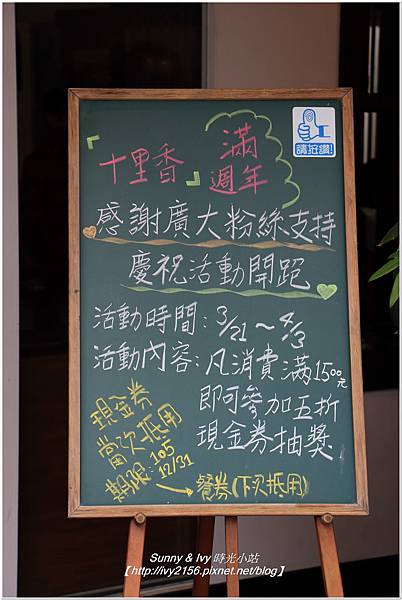 請按讚!
「十里香」滿
週年
感謝廣大粉絲支持
慶祝活動開跑
活動時間：3/21～4/3
活動內容：凡消費滿1500元
即可參加五折
現金券抽獎
現金券
當次抵用
期限：105
12/31
→餐券(下次抵用)
Sunny & Ivy 時光小站
【http://ivy2156.pixnet.net/blog】